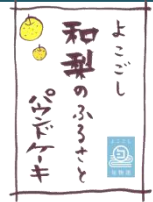 よこごし
和梨のふるさと
パウンドケーキ
よこごし